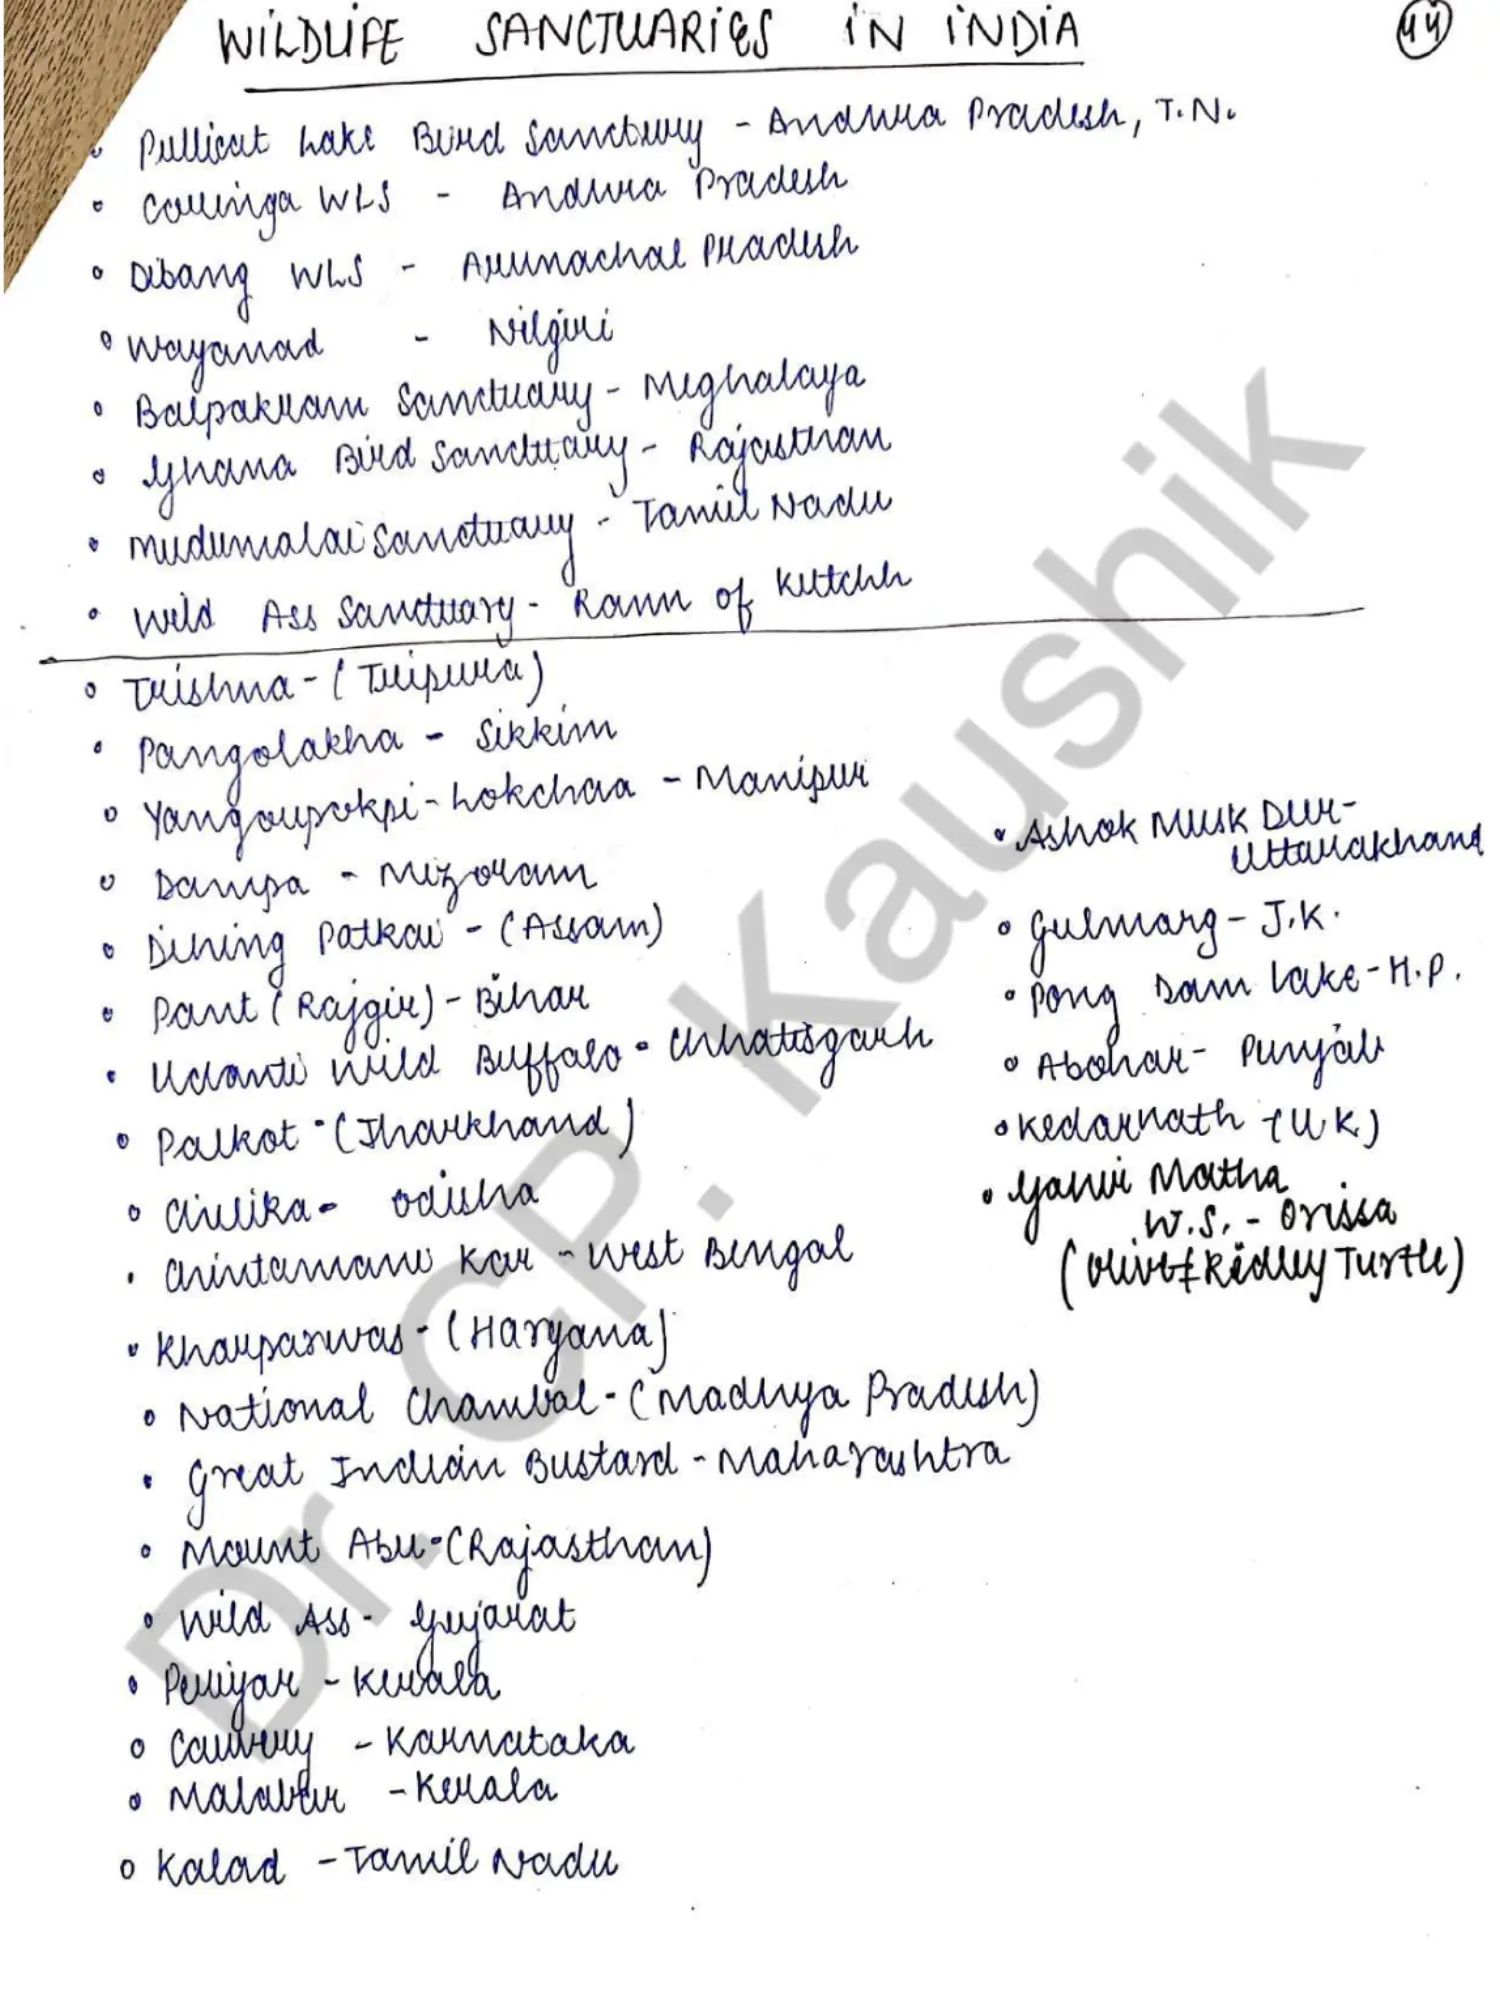 WILDLIFE SANCTUARIES IN INDIA
44
Pullicat Lake Bird Sanctuary - Andhra Pradesh, T.N.
Corringa WLS - Andhra Pradesh
Dibang WLS - Arunachal Pradesh
Wayanad - Nilgiri
Balpakram Sanctuary - Meghalaya
Ghana Bird Sanctuary - Rajasthan
Mudumalai Sanctuary - Tamil Nadu
Wild Ass Sanctuary - Rann of Kutchh
Trishna - (Tripura)
Pangolakha - Sikkim
Yangoupokpi - Lokchaa - Manipur
Dampa - Mizoram
Dihing Patkai - (Assam)
Pant (Rajgir) - Bihar
Udanti Wild Buffalo - Chhatisgarh
Palkot - (Jharkhand)
Chilika - Odisha
Chintamani Kar - West Bengal
Kharparwas - (Haryana)
National Chambal - (Madhya Pradesh)
Great Indian Bustard - Maharashtra
Mount Abu - (Rajasthan)
Wild Ass - Gujarat
Periyar - Kerala
Cauvery - Karnataka
Malabar - Kerala
Kalad - Tamil Nadu
Ashok Musk Dur -
Uttarakhand
Gulmarg - J.K.
Pong Dam Lake - H.P.
Abohar - Punjab
Kedarnath - (U.K)
Gahir Matha
W.S. - Orissa
(Olive Ridley Turtle)
Dr. CP. Kaushik